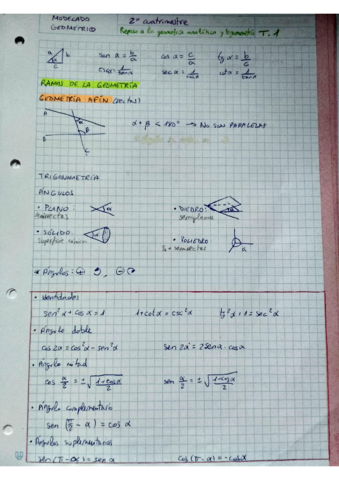 MODELADO
GEOMÉTRICO
2º cuatrimestre
Repaso a la geometría analítica y trigonometría T. 1
sen α = b/a cos α = c/a tg α = b/c
csc α = 1/sen α sec α = 1/cos α cot α = 1/tg α
RAMAS DE LA GEOMETRÍA
GEOMETRÍA AFÍN (rectas)
A
α
α + β < 180° → NO SON PARALELAS
B
β
C
TRIGONOMETRÍA
ÁNGULOS
• PLANO:
• DIEDRO:
semiplanos
• SÓLIDO:
superficie cónica
• POLIEDRO
* Ángulos: + , -
• Identidades
sen² α + cos α = 1 1 + cot α = csc² α tg² α + 1 = sec² α
• Ángulo doble
cos 2α = cos² α - sen² α sen 2α = 2 sen α · cos α
• Ángulo mitad
cos α/2 = ± √(1+cos α/2) sen α/2 = ± √(1-cos α/2)
• Ángulo complementario
sen (π/2 - α) = cos α
• Ángulos suplementarios
sen (π - α) = sen α cos (π - α) = - cos α